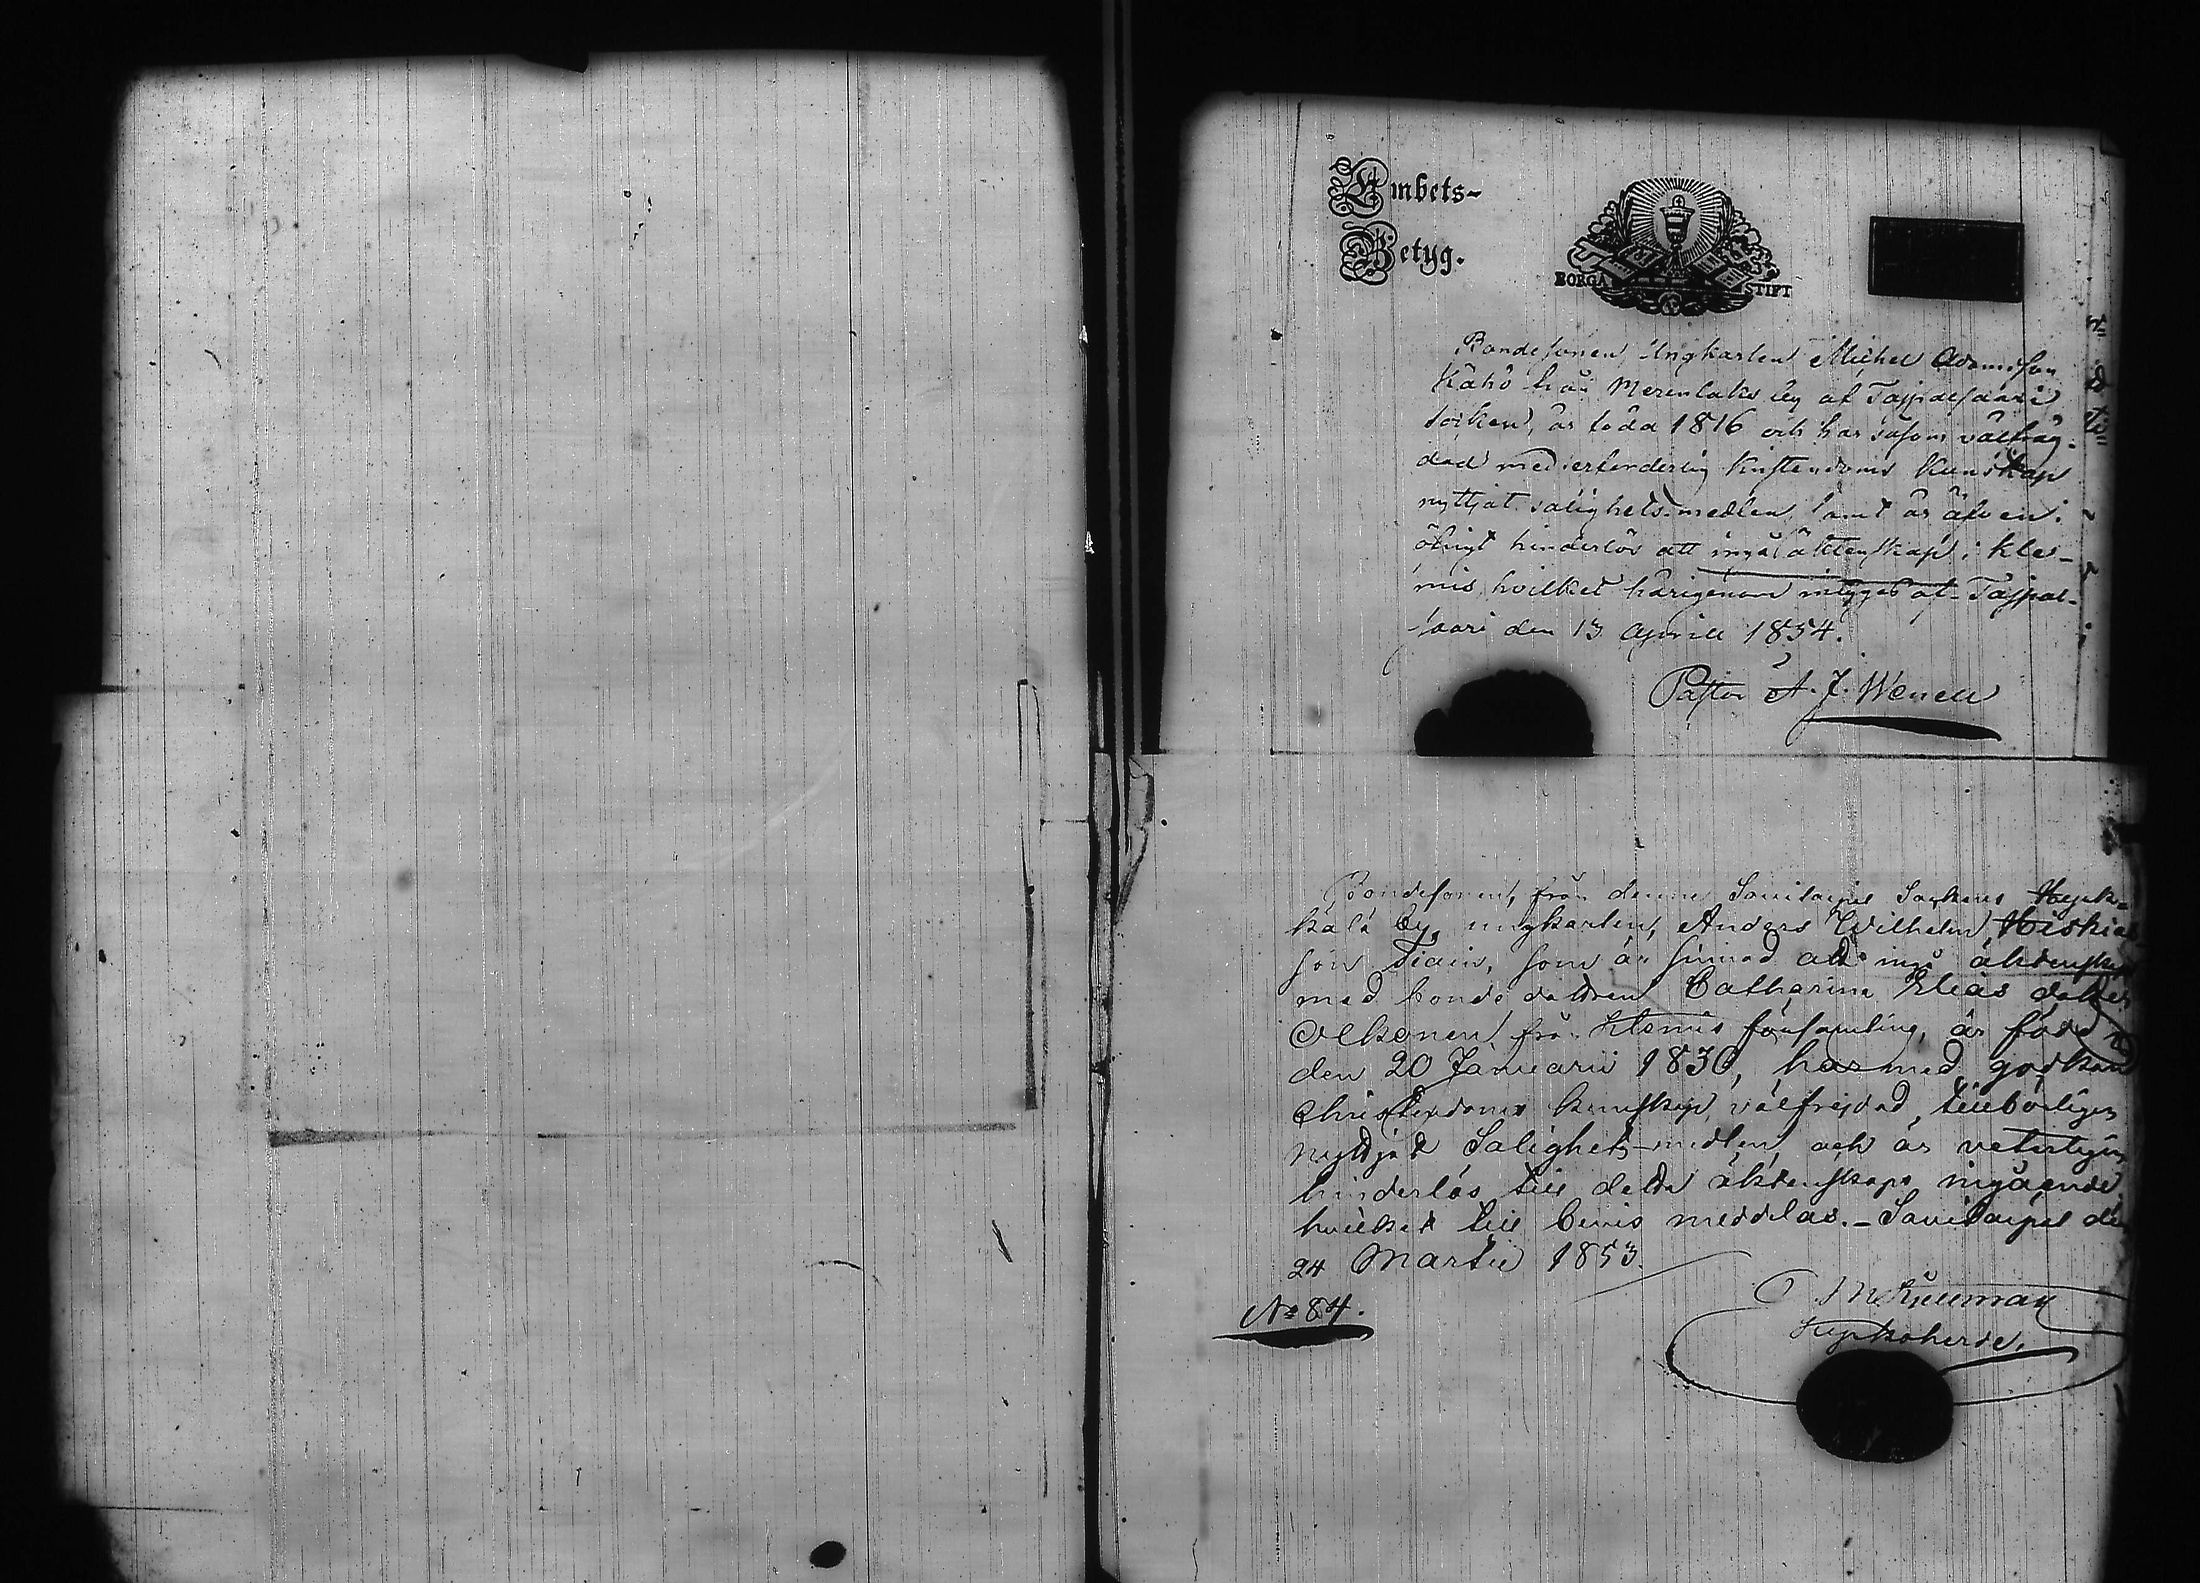 Embets-
Betyg.
BORGÅ STIFT
Bondesonen, Ungkarlen Michel Adamsson
Kähö från Merenlaks by af Taipalsaari
socken, är född 1816 och har såsom välfräg-
dad med erforderlig kristendoms kunskap
nyttjat salighetsmedlen, samt är äfven i
öfrigt hinderlös att ingå äktenskap i Kle-
mis, hvilket härigenom intygas af Taipal-
saari den 13 April 1854.
Pastor A. J. Wænell
Bondesonen, från denne Savitaipal Sockens
kälä by, ungkarlen, Anders Wilhelm Hiskias
son Tiain, som är sinnad att ingå äktenskap
med bonde dottren Catharina Elias dotter
Olkonen från Klemis församling, är född
den 20 Januarii 1830, har med godkänd
Christendoms kunskap, välfrejdad, tillbörligen
nyttjat Salighets-medlen, och är veterligen
hinderlös till detta äktenskaps ingående
hvilket till bevis meddelas. - Savitaipal den
24 Martii 1853.
No 84.
Kyrkoherde.